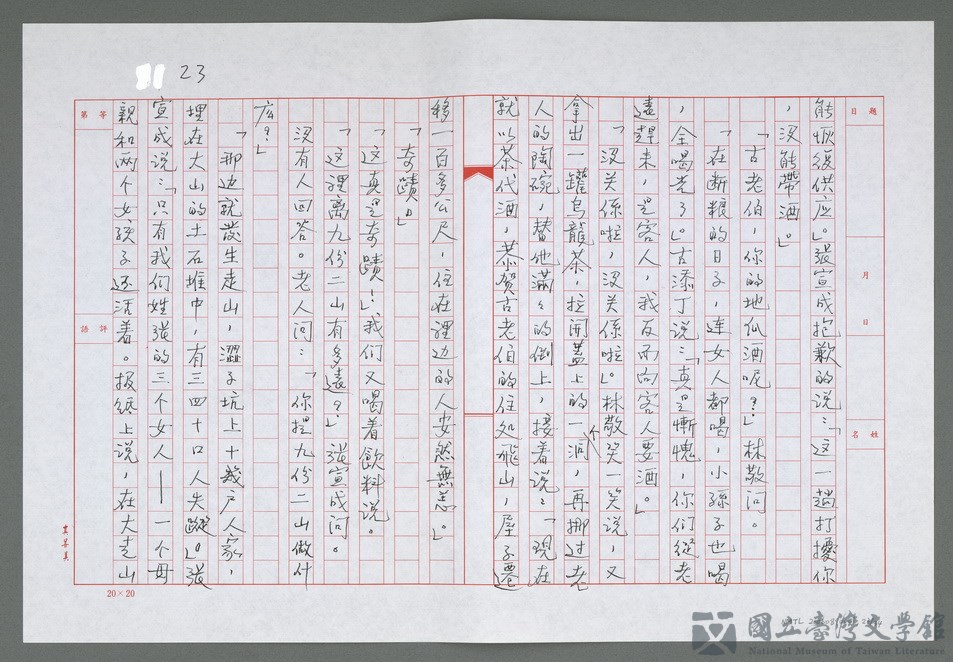 23
題目
月
日
姓名
能恢復供应。」張宣成抱歉的说：「这一趟打擾你
，没能帶酒。」
「古老伯，你的地瓜酒呢？」林敬问。
「在断粮的日子，連女人都喝，小孫子也喝
，全喝光了。」古添丁说：「真是慚愧，你们從老
遠趕来，是客人，我反而向客人要酒。」
「没关係啦，没关係啦。」林敬笑一笑说，又
拿出一罐烏龍茶，拉開蓋上的一个洞，再挪过老
人的陶碗，替他滿々的倒上，接着说：「現在
就以茶代酒，恭贺古老伯的住处飛山，屋子遷
移一百多公尺，住在裡边的人安然無恙。」
「奇蹟。」
「这真是奇蹟！」我们又喝着飲料说。
「这裡離九份二山有多遠？」張宣成问。
没有人回答。老人问：「你提九份二山做什
広？」
「那边就發生走山，澀子坑上十幾户人家，
埋在大山的土石堆中，有三四十口人失蹤。」張
宣成说：「只有我们姓張的三个女人——一个母
親和两个女孩子还活着。报紙上说，在大走山
等第
評語
20×20
國立臺灣文學館
National Museum of Taiwan Literature